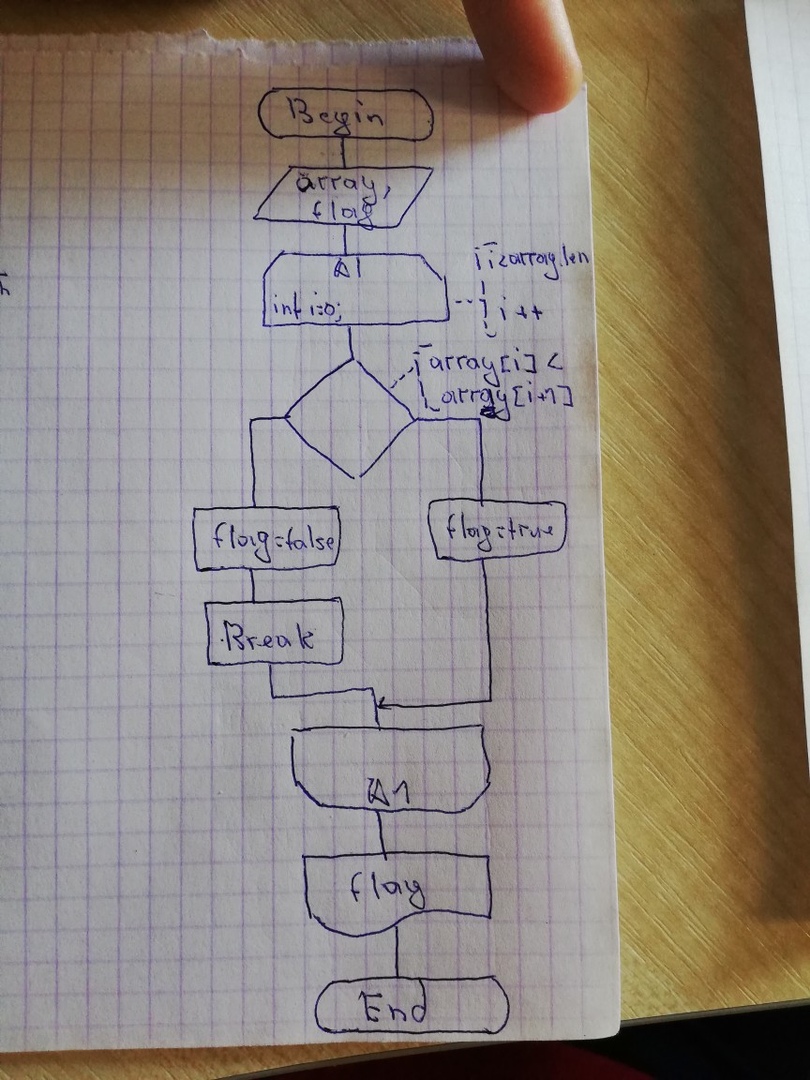 Begin
array,
flag
A1
int i=0;
i<array.len
i++
array[i] <
array[i+1]
flag=false
flag=true
Break
A1
flag
End